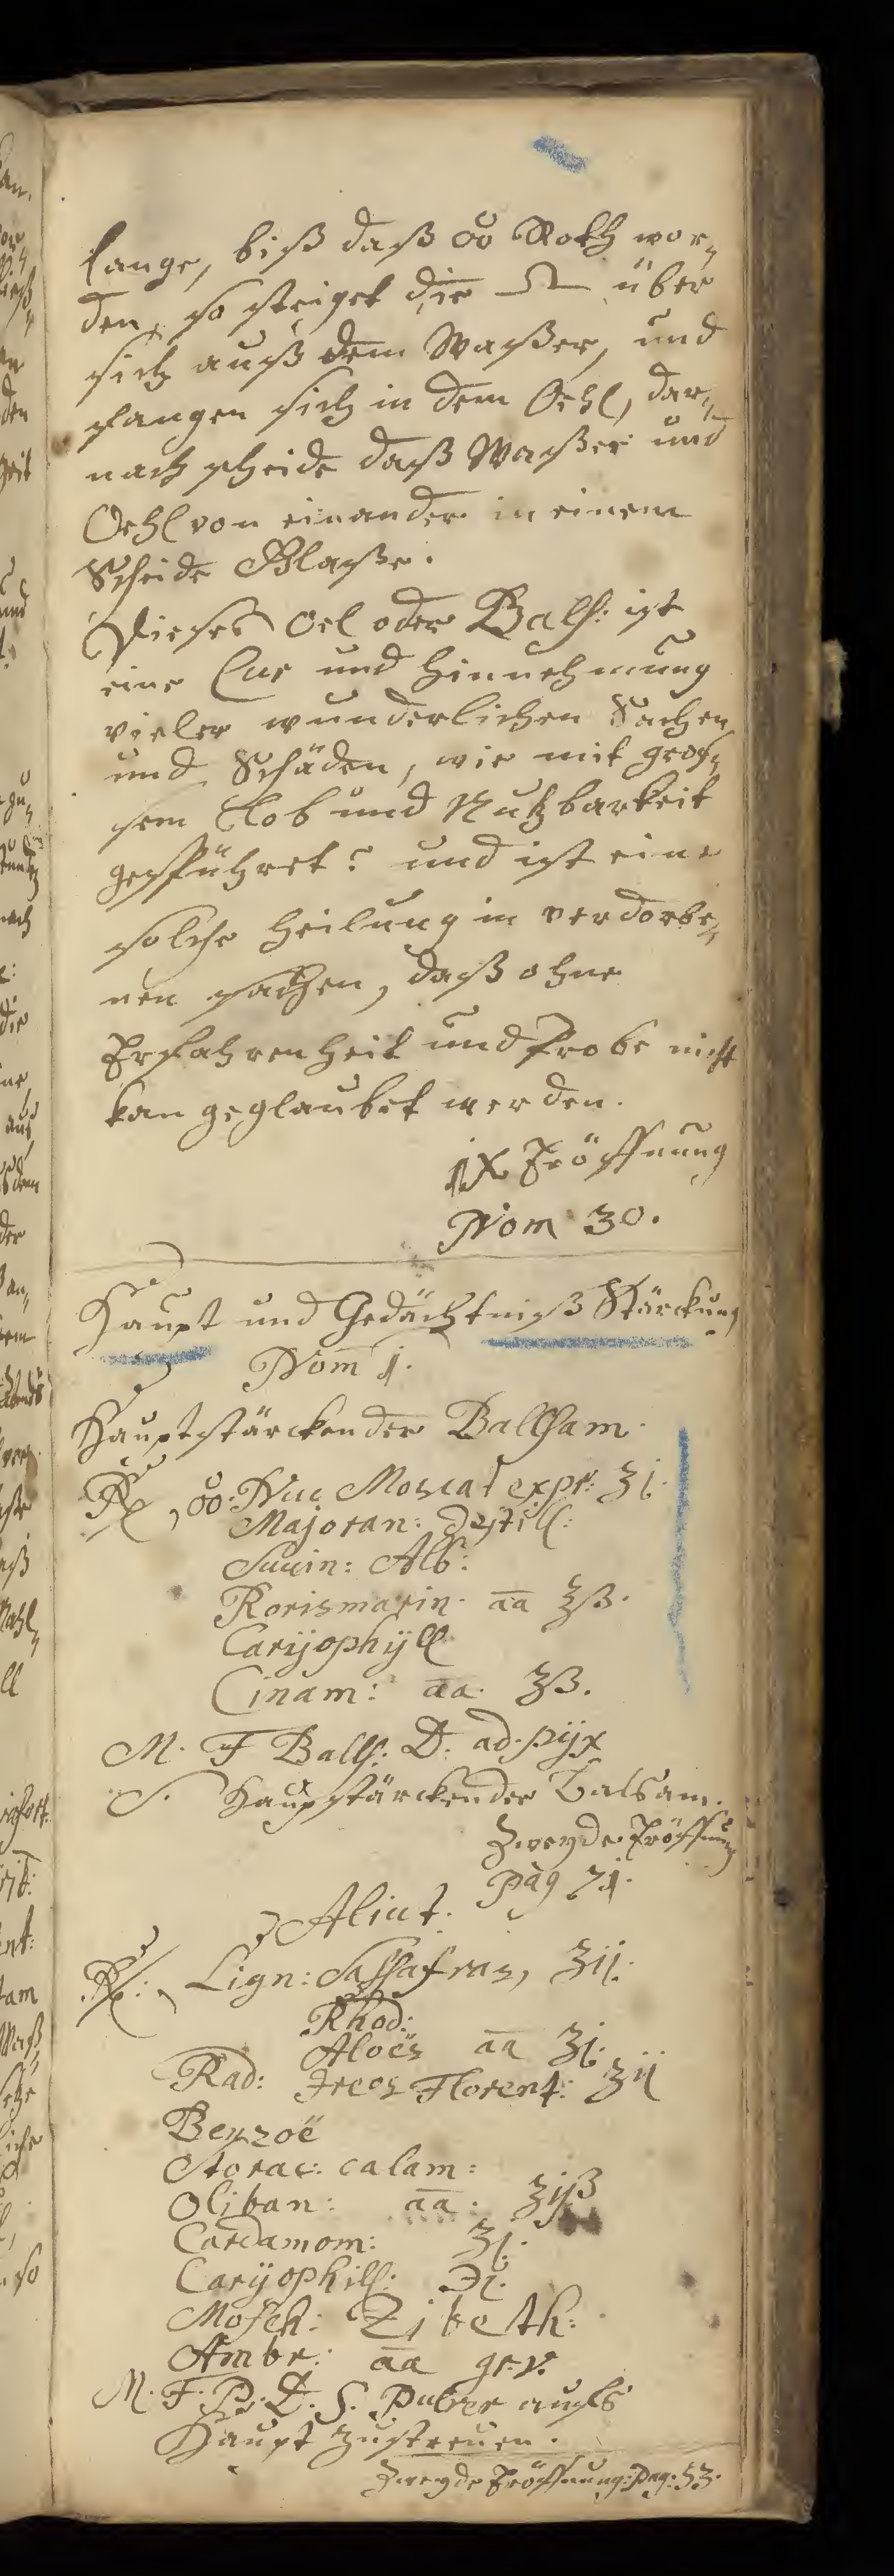 lange, biß daß o̊o Roth wor„
den, so steiget die ♎ über
sich auß dem Waßer, und
fangen sich in dem Oehl, dar„
nach scheide daß Waßer und
Oehl von einander in einem
Scheide Glaße.
Dieses Oel oder Bals: ist
eine Cur und hinnehmung
vieler wunderlichen Sachen
und Schäden, wie mit gros„
sem Lob und Nutzbarkeit
gespühret: und ist eine
solche heilung in verdorbe„
nen sachen, daß ohne
Erfahrenheit und Probe nicht
kan geglaubet werden.
IX Eröffnung
Nom 30.
Haupt und Gedächtniß Stärckung
Nom 1.
Hauptstärckender Ballsam.
℞, o̊o: Nuc Moscat expr: ʒj.
Majoran: destill:
Succin: Alb:
Rorismarin. aa ʒß.
Carÿophÿll
Cinam: aa. ʒß.
M. F Balls: D. ad pÿx
S. Haupstärckender Balsam.
Zweyde Eröffnung
Pag 71.
Aliut.
℞: Lign: Sassafras, ʒij.
Rhod:
Aloës aa ʒj.
Rad: Ireos Florent: ʒij
Benzoë
Storac: calam:
Oliban: aa. ʒijß
Cardamom: ʒj.
Carÿophill: ℈j.
Mosch: Zibeth:
Ambr: aa gr. v.
M. F. P. D. S. Pulver aufs
Haupt zustreuen.
Zweyde Eröffnung: Pag: 53.